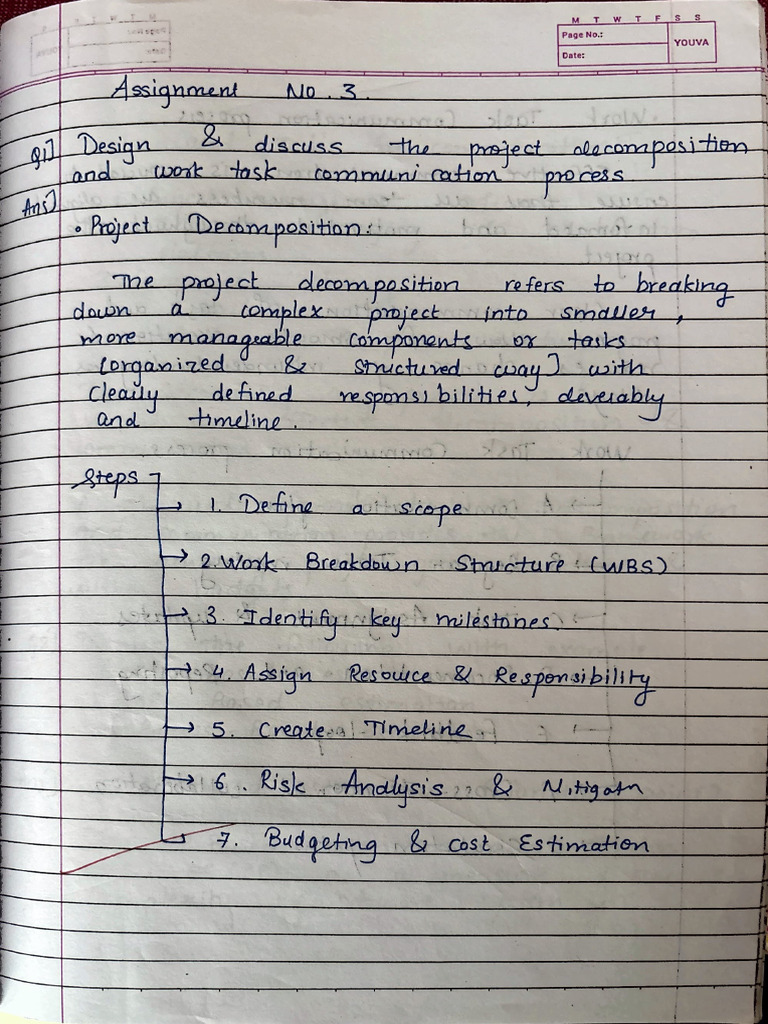 M T W T F S S
Page No.:
YOUVA
Date:
Assignment No. 3.
Q1] Design & discuss the project decomposition
and work task communication process.
Ans]
• Project Decomposition:
The project decomposition refers to breaking
down a complex project into smaller,
more manageable components or tasks
[organized & structured way] with
clearly defined responsibilities, deverably
and timeline.
Steps
1. Define a scope
2. Work Breakdown Structure (WBS)
3. Identify key milestones.
4. Assign Resource & Responsibility
5. Create Timeline
6. Risk Analysis & Mitigatn
7. Budgeting & cost Estimation